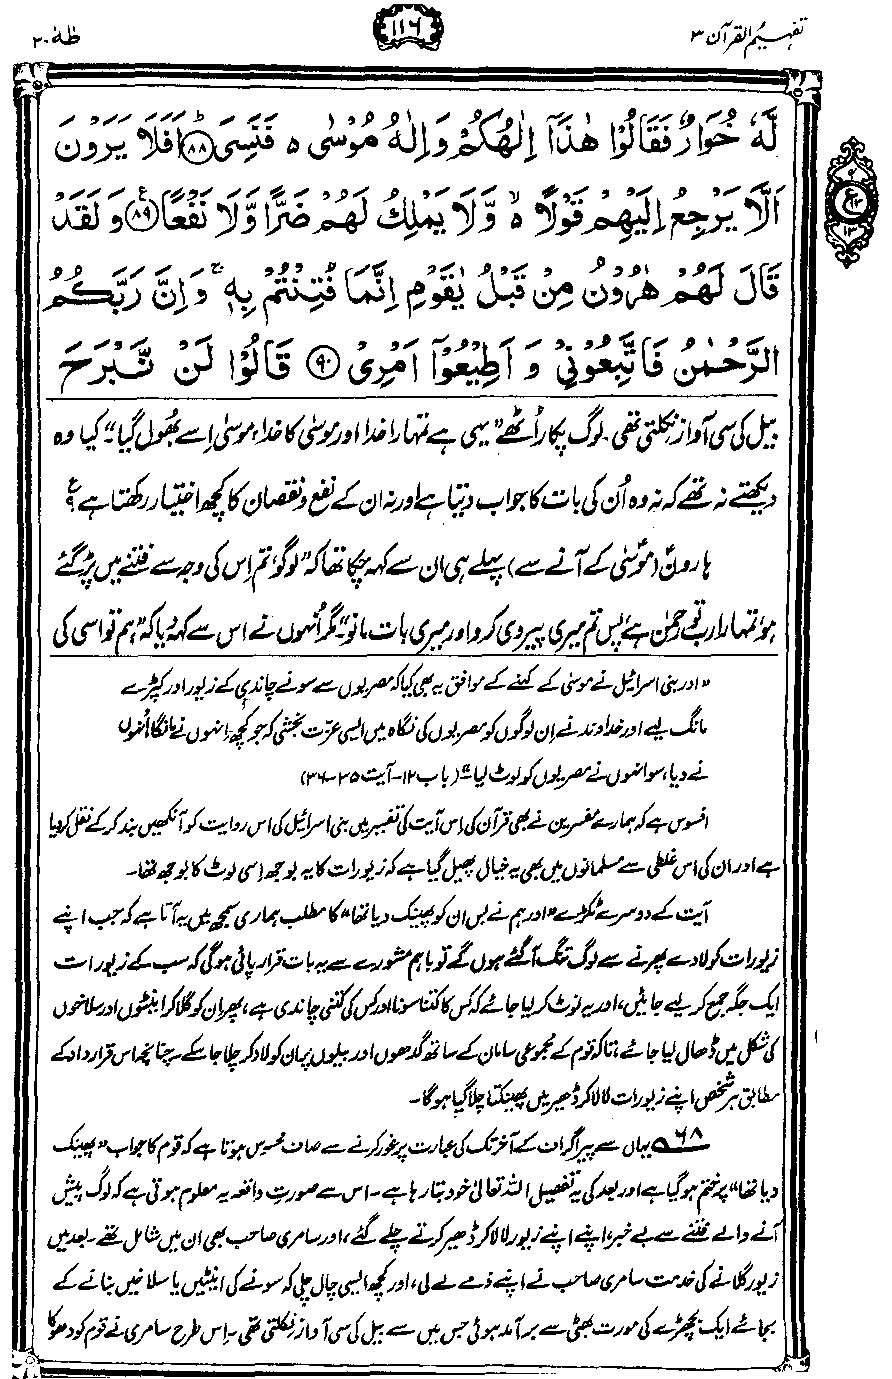 تفہیم القرآن ۳
۱۱۶
طٰہٰ ۲۰
لَّهٗ خُوَارٌ فَقَالُوْا هٰذَاۤ اِلٰهُكُمْ وَاِلٰهُ مُوْسٰى ە فَنَسِیَ ﴿۸۸﴾ اَفَلَا یَرَوْنَ
اَلَّا یَرْجِعُ اِلَیْهِمْ قَوْلًا ە وَّلَا یَمْلِكُ لَهُمْ ضَرًّا وَّلَا نَفْعًا ﴿۸۹﴾ وَلَقَدْ
قَالَ لَهُمْ هٰرُوْنُ مِنْ قَبْلُ یٰقَوْمِ اِنَّمَا فُتِنْتُمْ بِهٖ ۚ وَاِنَّ رَبَّكُمُ
الرَّحْمٰنُ فَاتَّبِعُوْنِیْ وَاَطِیْعُوْۤا اَمْرِیْ ﴿۹۰﴾ قَالُوْا لَنْ نَّبْرَحَ
بیل کی سی آواز نکلتی تھی۔ لوگ پکار اُٹھے ”یہی ہے تمہارا خدا اور موسٰیؑ کا خدا، موسٰیؑ اِسے بھُول گیا“۔ کیا وہ
دیکھتے نہ تھے کہ نہ وہ اُن کی بات کا جواب دیتا ہے اور نہ ان کے نفع و نقصان کا کچھ اختیار رکھتا ہے ؏
ہارونؑ (موسٰیؑ کے آنے سے) پہلے ہی ان سے کہہ چکا تھا کہ ”لوگو، تم اِس کی وجہ سے فتنے میں پڑ گئے
ہو، تمہارا رب تو رحمٰن ہے، پس تم میری پیروی کرو اور میری بات مانو“۔ مگر اُنہوں نے اس سے کہہ دیا کہ ”ہم تو اسی کی
”اور بنی اسرائیل نے موسٰی کے کہنے کے موافق یہ بھی کیا کہ مصریوں سے سونے چاندی کے زیور اور کپڑے
مانگ لیے اور خداوند نے اِن لوگوں کو مصریوں کی نگاہ میں ایسی عزت بخشی کہ جو کچھ انہوں نے مانگا اُنہوں
نے دیا، سو انہوں نے مصریوں کو لوٹ لیا“ (باب ۱۲۔ آیت ۳۵-۳۶)
افسوس ہے کہ ہمارے مفسرین نے بھی قرآن کی اِس آیت کی تفسیر میں بنی اسرائیل کی اس روایت کو آنکھیں بند کر کے نقل کر دیا
ہے اور ان کی اس غلطی سے مسلمانوں میں بھی یہ خیال پھیل گیا ہے کہ زیورات کا یہ بوجھ اِسی لوٹ کا بوجھ تھا۔
آیت کے دوسرے ٹکڑے ”اور ہم نے بس ان کو پھینک دیا تھا“ کا مطلب ہماری سمجھ میں یہ آتا ہے کہ جب اپنے
زیورات کو لادے پھرنے سے لوگ تنگ آ گئے ہوں گے تو باہم مشورے سے یہ بات قرار پائی ہو گی کہ سب کے زیورات
ایک جگہ جمع کر لیے جائیں، اور یہ نوٹ کر لیا جائے کہ کس کا کتنا سونا اور کس کی کتنی چاندی ہے، پھر ان کو گلا کر اینٹوں اور سلاخوں
کی شکل میں ڈھال لیا جائے، تاکہ قوم کے مجموعی سامان کے ساتھ گدھوں اور بیلوں پر ان کو لاد کر چلا جا سکے۔ چنانچہ اس قرارداد کے
مطابق ہر شخص اپنے زیورات لا لا کر ڈھیر میں پھینکتا چلا گیا ہو گا۔
۶۸؎ یہاں سے پیراگراف کے آخر تک کی عبارت پر غور کرنے سے صاف محسوس ہوتا ہے کہ قوم کا جواب ”پھینک
دیا تھا“ پر ختم ہو گیا ہے اور بعد کی یہ تفصیل اللہ تعالیٰ خود بتا رہا ہے۔ اس سے صورتِ واقعہ یہ معلوم ہوتی ہے کہ لوگ پیش
آنے والے فتنے سے بے خبر، اپنے اپنے زیور لا لا کر ڈھیر کرتے چلے گئے، اور سامری صاحب بھی ان میں شامل تھے۔ بعد میں
زیور گلانے کی خدمت سامری صاحب نے اپنے ذمے لے لی، اور کچھ ایسی چال چلی کہ سونے کی اینٹیں یا سلاخیں بنانے کے
بجائے ایک بچھڑے کی مورت بھٹی سے برآمد ہوئی جس میں سے بیل کی سی آواز نکلتی تھی۔ اِس طرح سامری نے قوم کو دھوکا